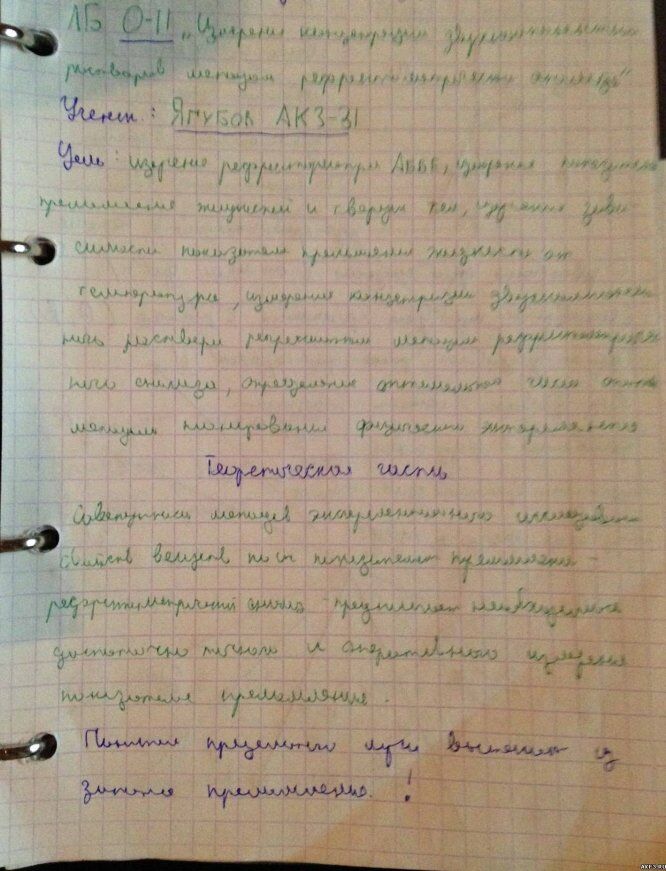 ЛБ О-11 „Измерение концентрации двухкомпонентных
растворов методом рефрактометрического анализа"
Ученик: ЯГУБОВ АК3-31
Цель: изучение рефрактометра АББЕ, измерение показателя
преломления жидкостей и твердых тел, изучение зави
симости показателя преломления жидкости от
температуры, измерение концентрации двухкомпонент
ного раствора методом рефрактометрич
ного анализа, определение оптимального числа
методом планирования физического эксперимента
Теоретическая часть
Совокупность методов экспериментального исследования
свойств веществ по их показателям преломления -
рефрактометрический анализ - предполагает необходимость
достаточно точного и оперативного измерения
показателя преломления.
Понятие предельного луча вытекает из
закона преломления. !
AK3-3.RU